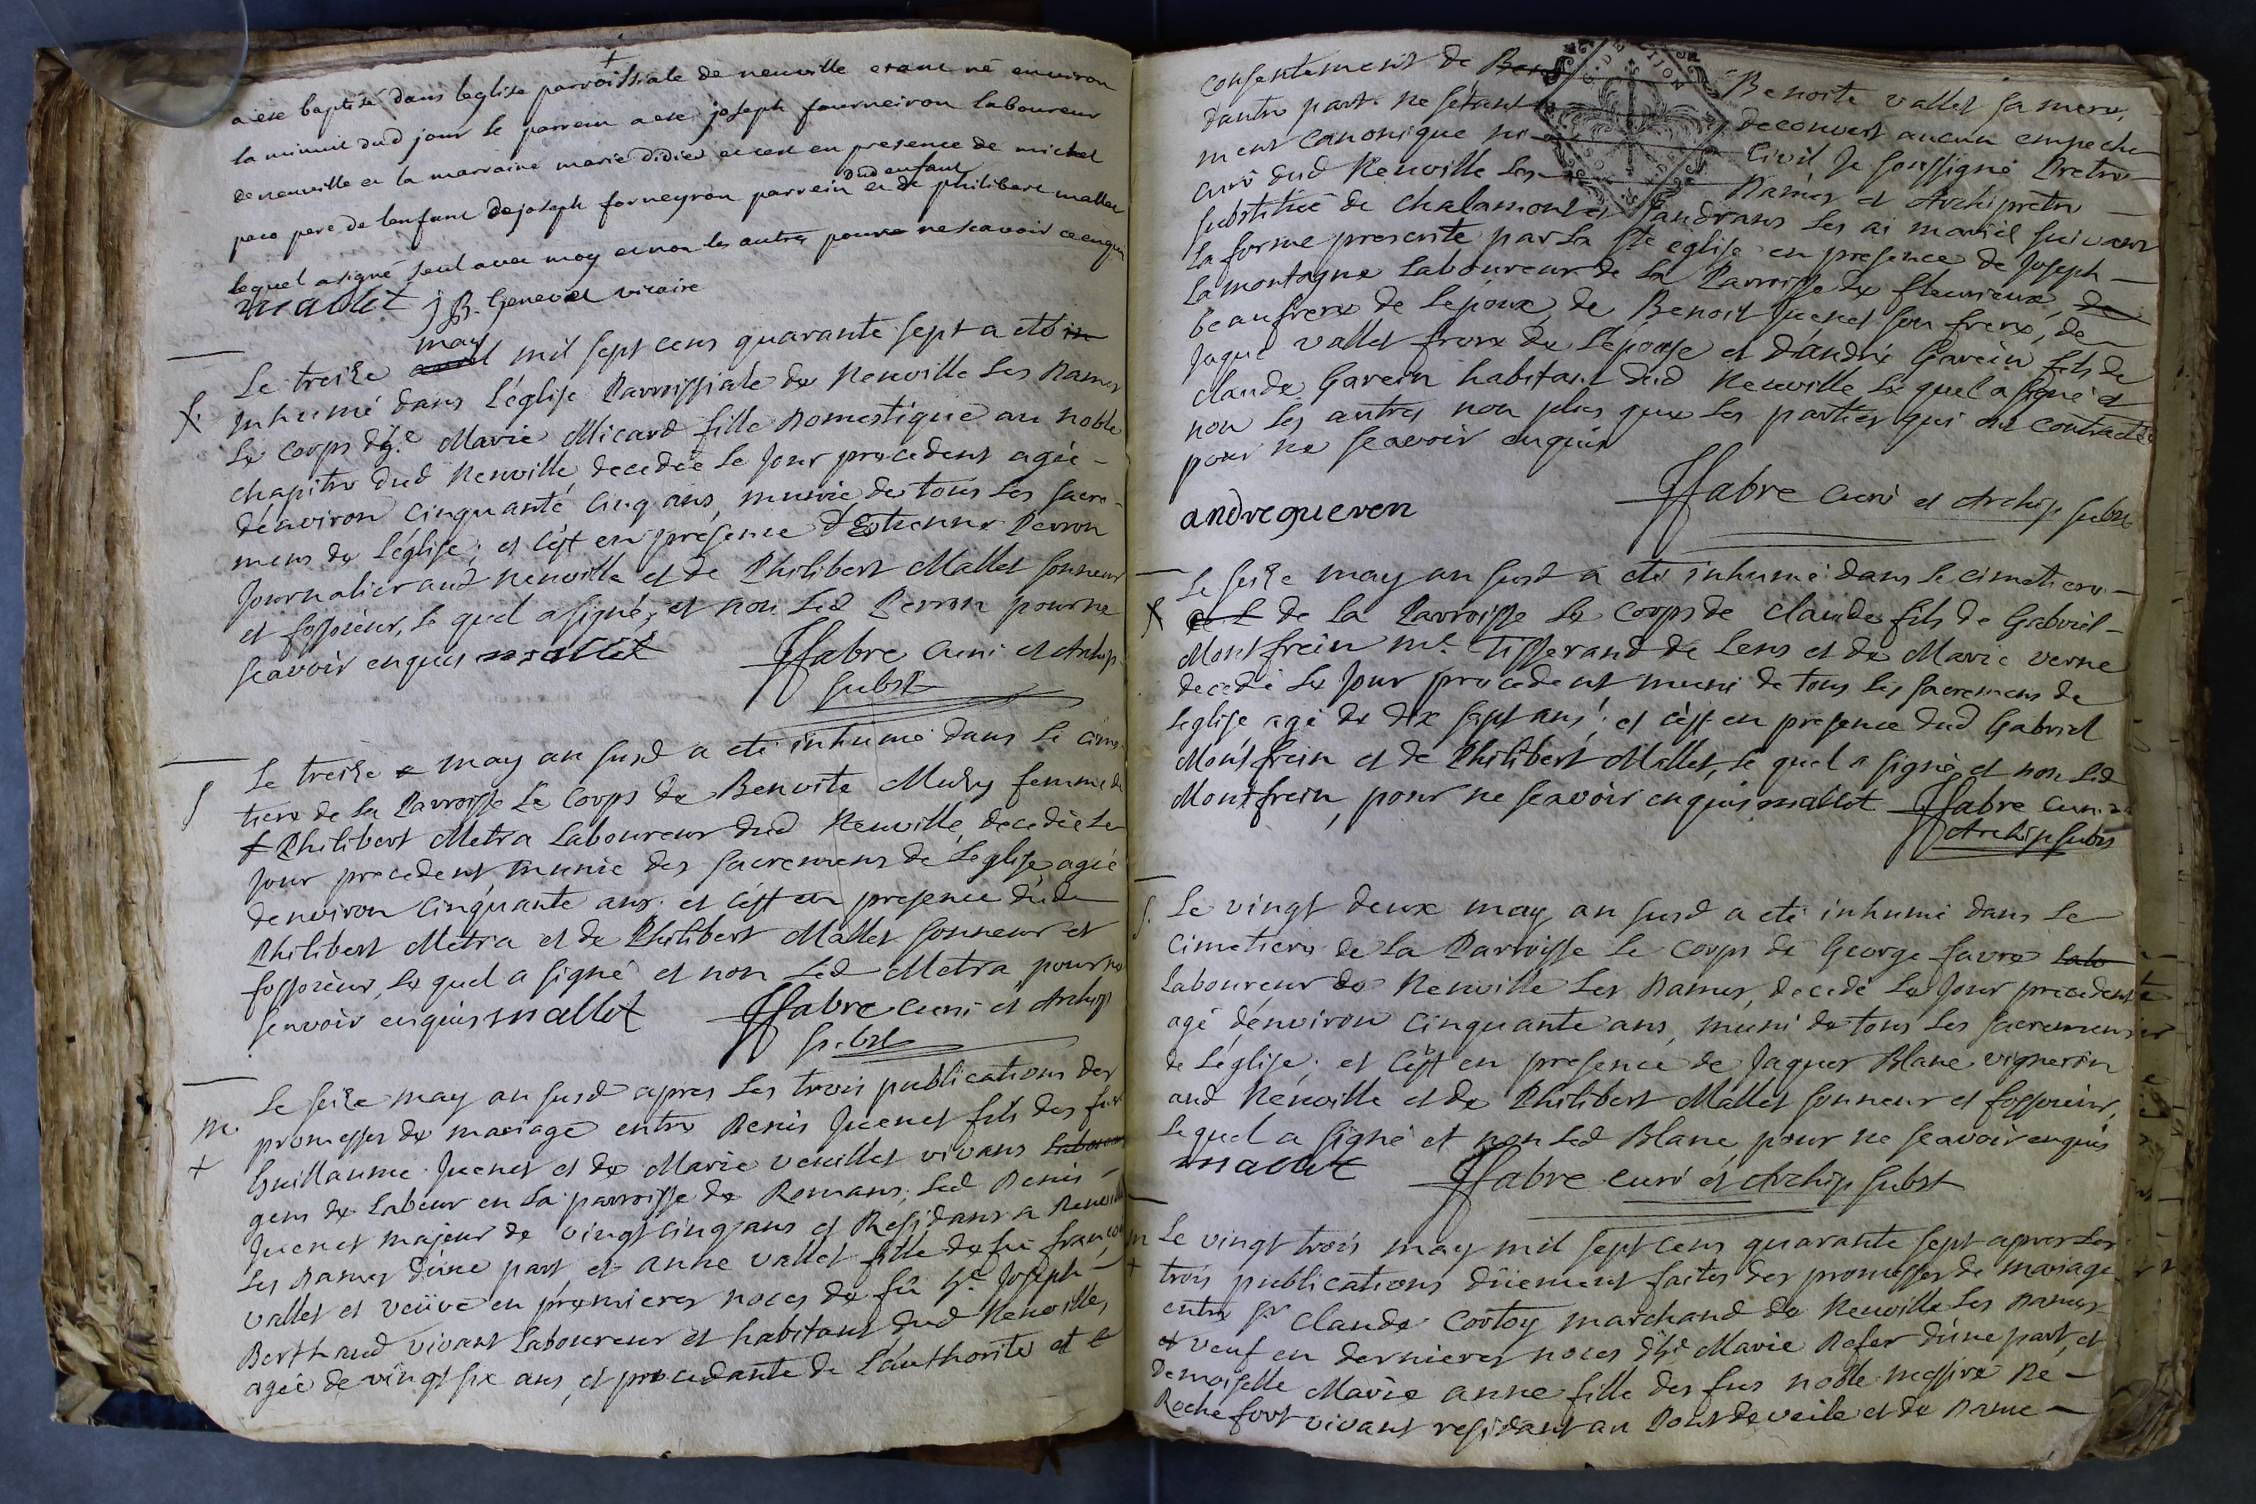 a ete baptisé dans leglise parroissiale de neuville etant né environ
la minuit dud jour le parrein a ete joseph fourneiron laboureur
de neuville et la marraine marie didier et cest en presence de michel
dud enfant
paco pere de lenfant de joseph forneyron parrein et de philibert mallet
lequel a signé seul avec moy et non les autres pour ne scavoir ce enquis
mallet j B. Genevet vicaire
may
Le treize avril mil sept cens quarante sept a eté in
f. Inhumé dans L'église Parroissiale de Neuville Les Dames
Le corps d'h.e Marie Micard fille Domestique au noble
chapitre dud Neuville, decedée Le Jour precedent agée -
d'environ cinquante cinq ans, munie de tous Les sacre-
mens de L'église; et c'est en présence d'Estienne Perron
Journalier aud Neuville et de Philibert Mallet sonneur
et fossoieur, Le quel a signé, et non Led Perron pour ne
scavoir enquis mallet JFabre curé et Archip.
subst
Le treize e may an susd a eté inhumé dans Le cime-
f tiere de La Parroisse Le Corps de Benoite Mury femme de
f Philibert Metra Laboureur dud Neuville, decedée Le
Jour precedent, munie des sacremens de Leglise, agée
denviron cinquante ans. et c'est en presence dud
Philibert Metra et de Philibert Mallet sonneur et
fossoieur, Le quel a signé et non Led Metra pour ne
scavoir enquis mallet JFabre curé et Archip
subst
Le seize may an susd apres Les trois publications des
m. promesses de mariage entre Denis Juenet fils des fus
+ Guillaume Juenet et de Marie veuillet vivans Laboureur
gens de Labeur en La parroisse de Romans, Led Denis -
Juenet majeur de vingt cinq ans et Residant a Neuville
Les Dames d'une part, et anne vallet fille de fu françois
vallet et veüve en premieres noces de fû h.e Joseph -
Berthaud vivant Laboureur et habitant dud Neuville,
agée de vingt six ans, et procedante de L'authorité et e
consentement de Ben Benoite vallet sa mere,
dautre part. ne s'étant decouvert aucun empeche
ment canonique ni Civil Je soussigné Pretre
curé dud Neuville Les Dames et Archipretre -
substitué de chalamont et sandrans Les ai mariés suivant
La forme prescrite par La ste eglise en presence de Joseph -
Lamontagne Laboureur de La Parroisse de fleurieux, de
beaufrere de Lepoux, de Benoit Juenet son frere, de
Jaque vallet frere de L'épouse et d'andré Gavein fils de
claude Gavein habitant dud Neuville Le quel a signé et
non Les autres non plus que Les parties qui ont contracté
pour ne scavoir enquis
andregueven JFabre curé et Archip subst
Le seize may an susd a eté inhumé dans Le cimetiere -
f de La Parroisse Le corps de claude fils de Gabriel -
Montfrein m.e Tisserand de Lens et de Marie verne
decedé Le Jour precedent muni de tous Les sacremens de
Leglise agé de dix sept ans; et c'est en presence dud Gabriel
Montfrein et de Philibert Mallet, Le quel a signé et non Led
Montfrein, pour ne scavoir enquis mallet JFabre curé et
Archip subst
f. Le vingt deux may an susd a eté inhumé dans Le
cimetiere de La Parroisse Le corps de George favre Labo
Laboureur de Neuville Les Dames, decedé Le Jour precedent
agé d'environ cinquante ans, muni de tous Les sacremens
de L'église; et c'est en presence de Jaques Blanc vigneron
aud Neuville et de Philibert Mallet sonneur et fossoieur,
Le quel a signé et non Led Blanc, pour ne scavoir enquis
mallet JFabre curé et Archip subst
m Le vingt trois may mil sept cens quarante sept apres Les
+ trois publications düement faites des promesses de mariage
entre s.r Claude Cortoy marchand de Neuville Les Dames
et veuf en dernieres noces d'h.e Marie Refer d'une part, et
Demoiselle Marie anne fille des fus noble messire De -
Rochefort vivant residant au Pont de veile et de Dame -